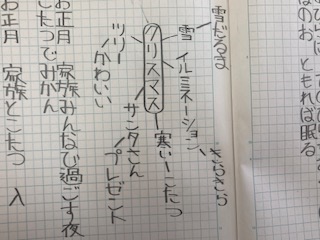 なのお ともれば眠る
雪だるま
雪 イルミネーション きらきら
クリスマス 寒い こたつ
サンタさん プレゼント
ツリー かわいい
お正月 家族みんなで過ごす夜
こたつでみかん
お正月 家族とこたつ 入